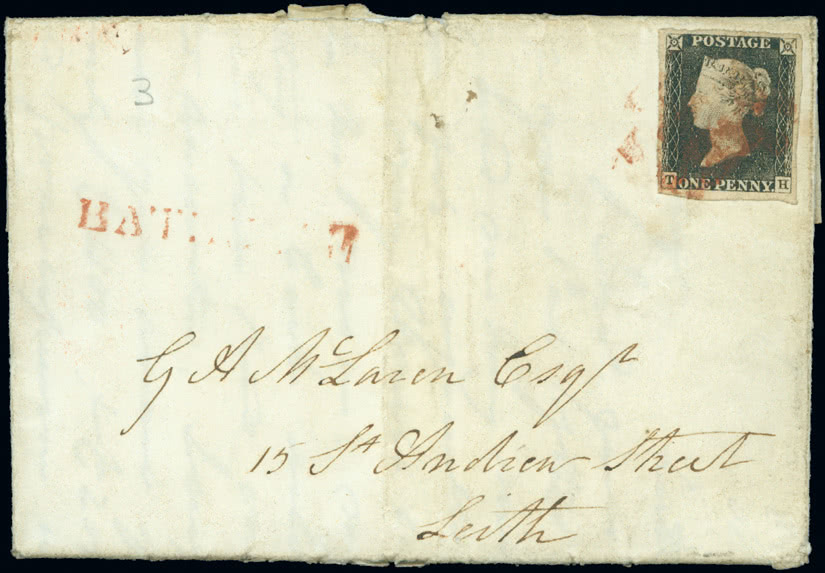 POSTAGE
T ONE PENNY. H
3
G A McLaren Esqr
15 St Andrew Street
Leith